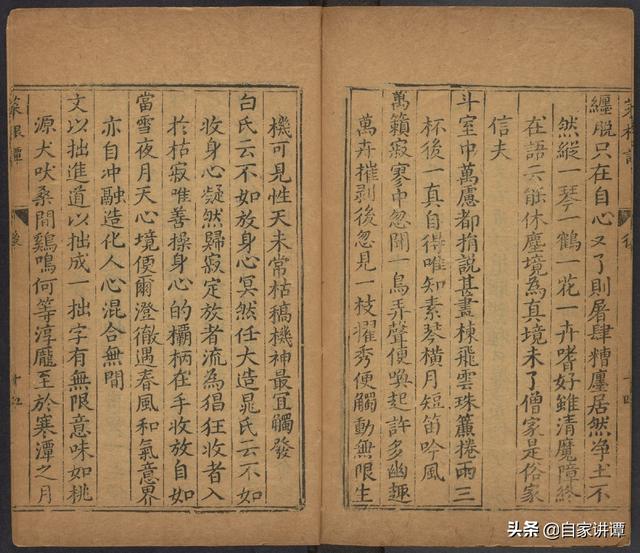 菜根譚
後
纏脫只在自心又了則屠肆糟廛居然净土不
然縱一琴一鶴一花一卉嗜好雖清魔障終
在語云能休塵境為真境未了僧家是俗家
信夫
斗室中萬慮都捐說甚畫棟飛雲珠簾捲雨三
杯後一真自得唯知素琴橫月短笛吟風
萬籟寂寥中忽聞一鳥弄聲便喚起許多幽趣
萬卉摧剥後忽見一枝擢秀便觸動無限生
機可見性天未常枯稿機神最宜觸發
白氏云不如放身心冥然任大造晁氏云不如
收身心凝然歸寂定放者流為猖狂收者入
於枯寂唯善操身心的欛柄在手收放自如
當雪夜月天心境便爾澄徹遇春風和氣意界
亦自冲融造化人心混合無間
文以拙進道以拙成一拙字有無限意味如桃
源犬吠桑間鷄鳴何等淳龐至於寒潭之月
菜根譚
後
头条 @自家讲谭